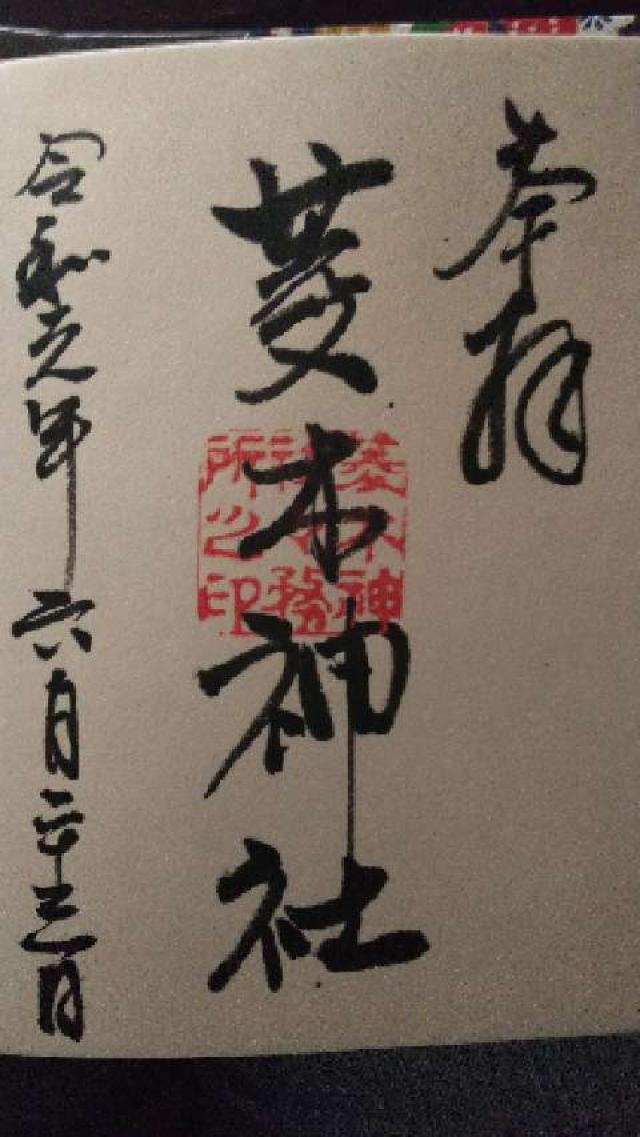 奉拝
菱木神社
菱木神社務所之印
令和元年六月二十三日